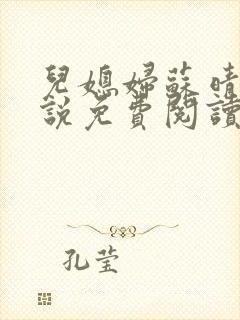 兒媳婦蘇晴
說免費閱讀
孔莹